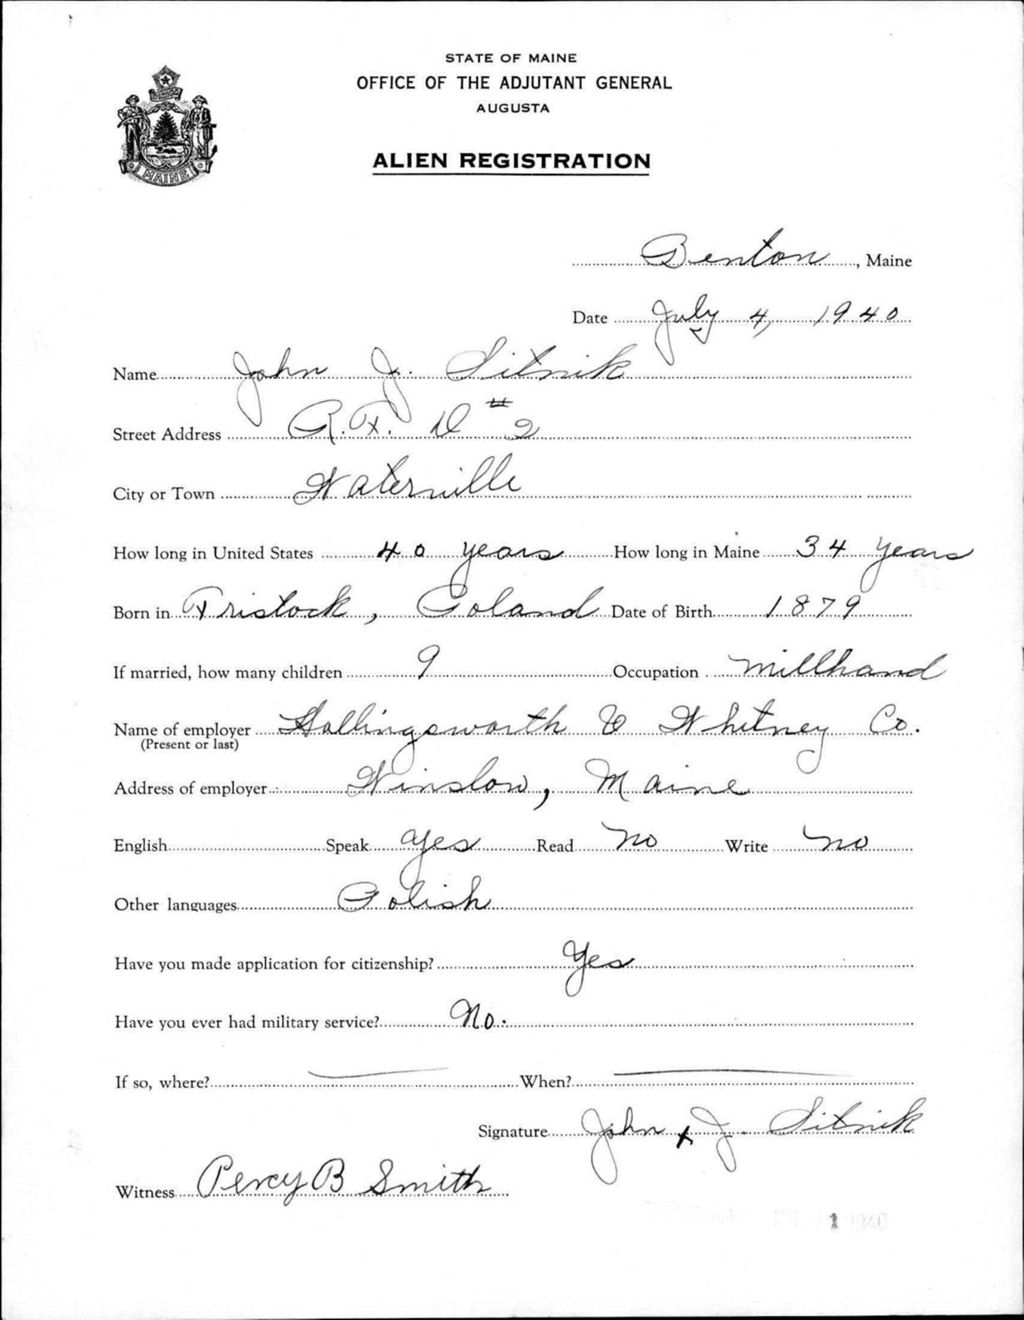 STATE OF MAINE
OFFICE OF THE ADJUTANT GENERAL
AUGUSTA
ALIEN REGISTRATION
MAINE
Benton, Maine
Date July 4, 1940
Name John J. Sitnik
Street Address R.F.D #2
City or Town Waterville
How long in United States 40 years How long in Maine 34 years
Born in Tristock, Poland Date of Birth 1879
If married, how many children 9 Occupation millhand
Name of employer Hollingsworth & Whitney Co.
(Present or last)
Address of employer Winslow, Maine
English Speak yes Read no Write no
Other languages Polish
Have you made application for citizenship? Yes
Have you ever had military service? No.
If so, where? When?
Signature John x J. Sitnik
Witness Percy B Smith
1 1940